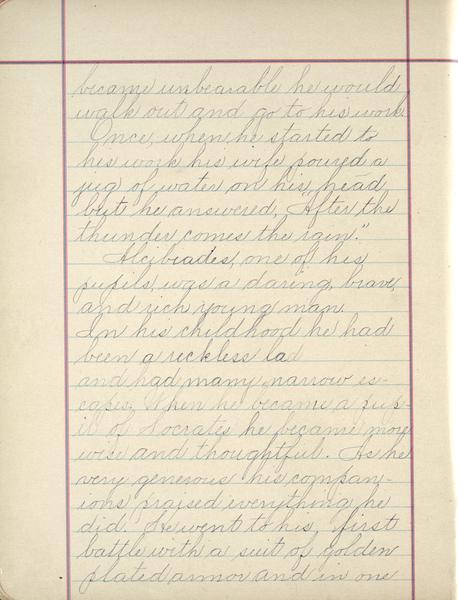 became unbearable he would
walk out and go to his work.
Once, when he started to
his work his wife poured a
jug of water on his head,
but he answered, "After the
thunder comes the rain."
Alcibiades, one of his
pupils, was a daring, brave,
and rich young man.
In his childhood he had
been a reckless lad
and had many narrow es-
capes. When he became a pup-
il of Socrates he became more
wise and thoughtful. As he
very generous his compan-
ions praised everything he
did. He went to his first
battle with a suit of golden
plated armor and in one